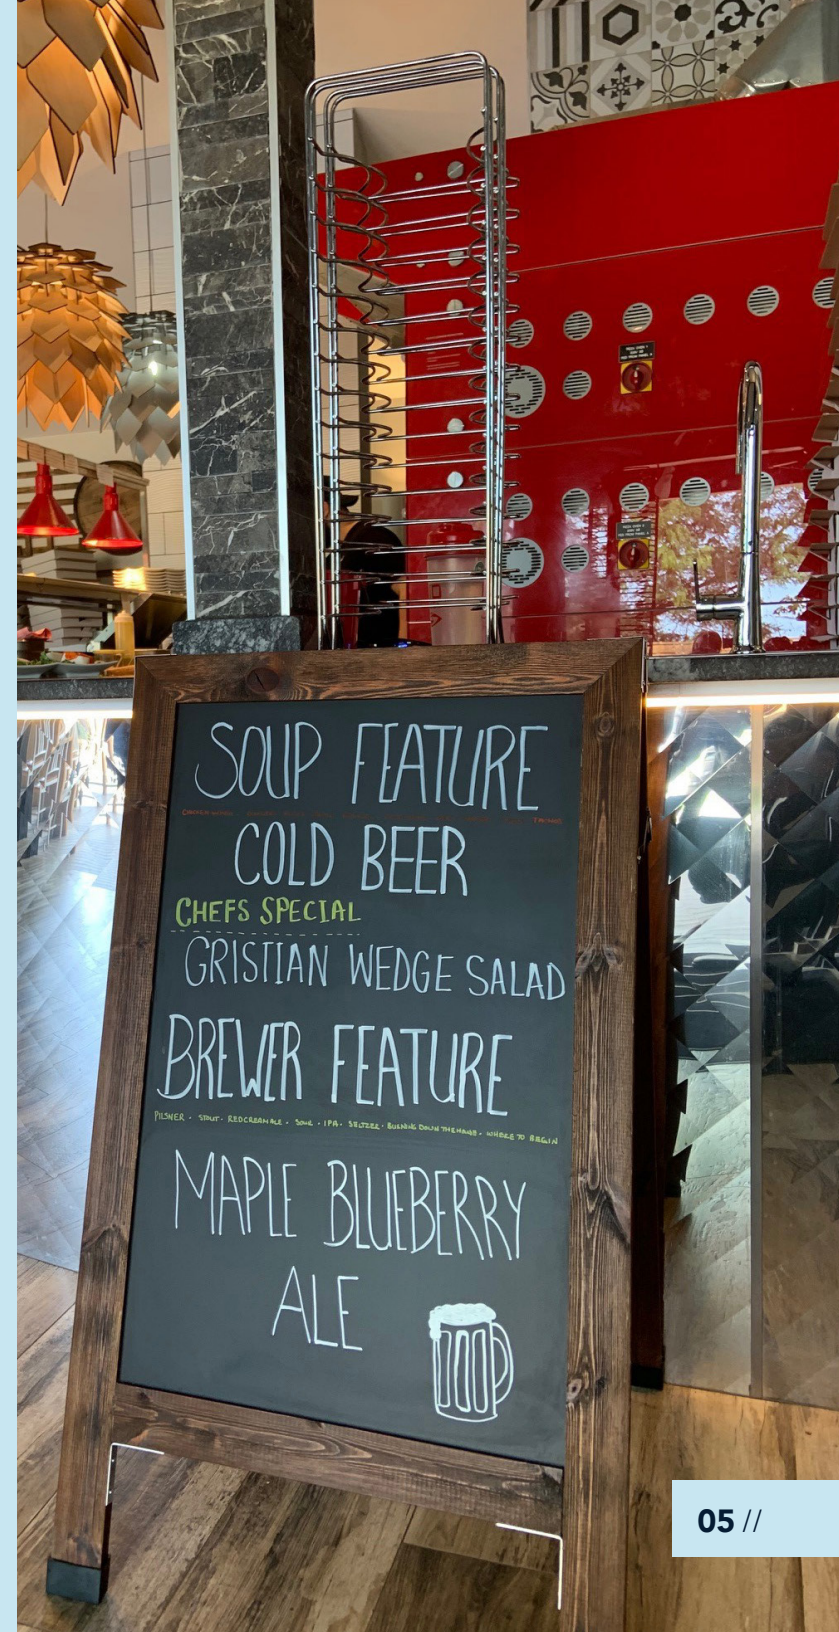 SOUP FEATURE
COLD BEER
CHEFS SPECIAL
GRISTIAN WEDGE SALAD
BREWER FEATURE
PILSNER · STOUT · RED CREAM ALE · SOUR · IPA · SELTZER · BURNING DOWN THE HOUSE · WHERE TO BEGIN
MAPLE BLUEBERRY
ALE
05 //